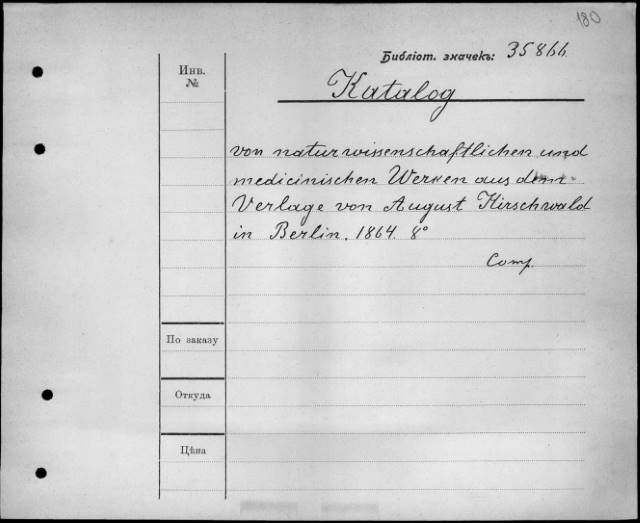 180
Библіот. значекъ: 35866.
Инв.
№
Katalog
von naturwissenschaftlichen und
medicinischen Werken aus dem
Verlage von August Hirschwald
in Berlin. 1864. 8°
Comp.
По заказу
Откуда
Цѣна